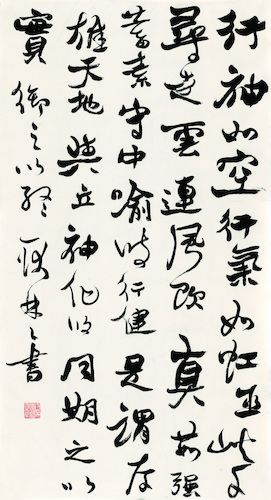 行神如空行氣如虹巫峽千
尋走雲連風飲真茹强
蓄素守中喻彼行健是謂存
雄天地與立神化攸同期之以
實御之以終林書